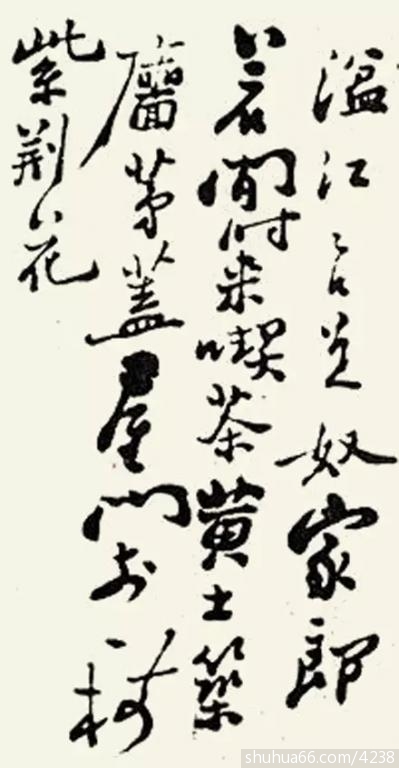 湓江々口是奴家郎
若閒時來喫茶黃土築
廧茅蓋屋門前一樹
紫荊花
shuhua66.com/4238